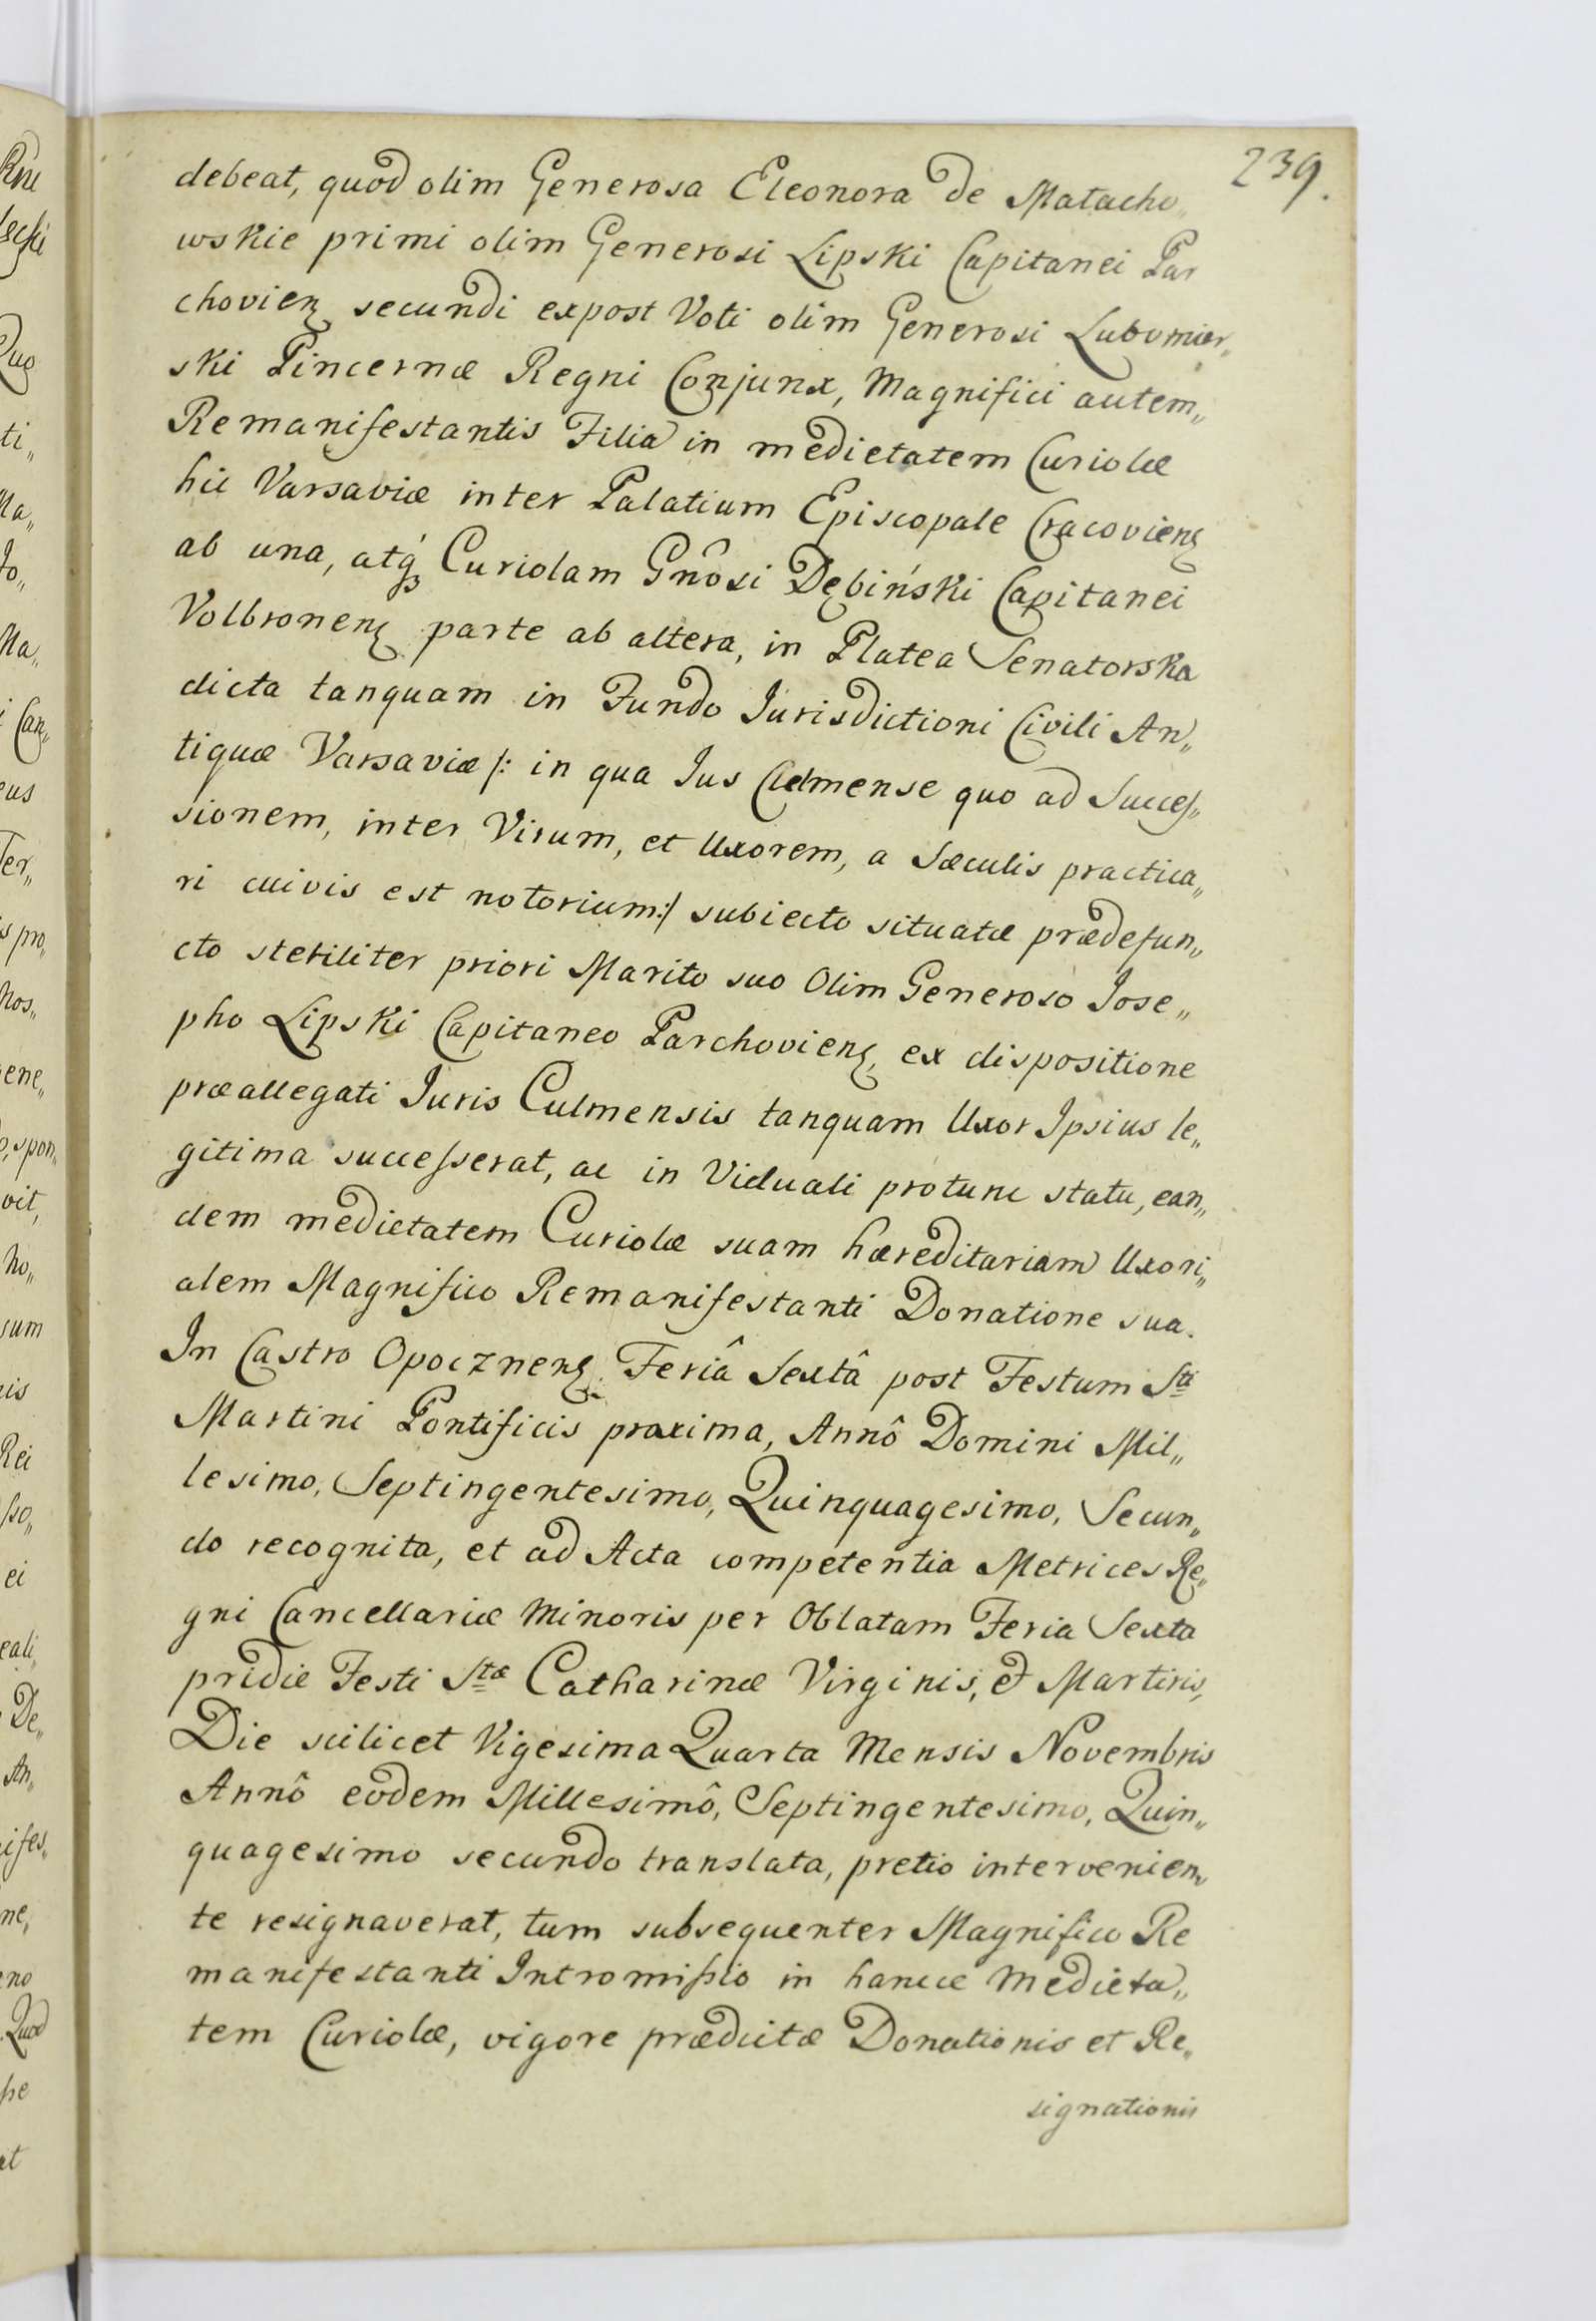 239.
debeat, quod olim Generosa Eleonora de Małacho„
wskie primi olim Generosi Lipski Capitanei Par
chovien secundi expost Voti olim Generosi Lubomier„
ski Pincernæ Regni Conjunx, Magnifici autem„
Remanifestantis Filia in medietatem Curiolæ
hic Varsaviæ inter Palatium Episcopale Cracovien
ab una, atq́ Curiolam Gnôsi Dębiński Capitanei
Volbronen parte ab altera, in Platea Senatorska
dicta tanquam in Fundo Jurisdictioni Civili An„
tiquæ Varsaviæ /: in qua Jus Culmense quo ad Succes„
sionem, inter Virum, et Uxorem, a Sæculis practica„
ri cuivis est notorium :/ subiecto situatæ prædefun„
cto steriliter priori Marito suo Olim Generoso Jose„
pho Lipski Capitaneo Parchovien, ex dispositione
præallegati Juris Culmensis tanquam Uxor Ipsius le„
gitima successerat, ac in Viduali protunc statu, ean„
dem medietatem Curiolæ suam hæreditariam Uxori„
alem Magnifico Remanifestanti Donatione sua.
In Castro Opocznen. Feriâ Sextâ post Festum Sti
Martini Pontificis proxima, Annô Domini Mil„
lesimo, Septingentesimo, Quinquagesimo, Secun„
do recognita, et ad Acta competentia Metrices Re„
gni Cancellariæ Minoris per Oblatam Feria Sexta
pridie Festi Stæ Catharinæ Virginis, et Martiris,
Die scilicet Vigesima Quarta Mensis Novembris
Annô eodem Millesimô, Septingentesimo, Quin„
quagesimo secundo translata, pretio intervenien„
te resignaverat, tum subsequenter Magnifico Re
manifestanti Intromissio in hancce Medieta„
tem Curiolæ, vigore prædictæ Donationis et Re„
signationis